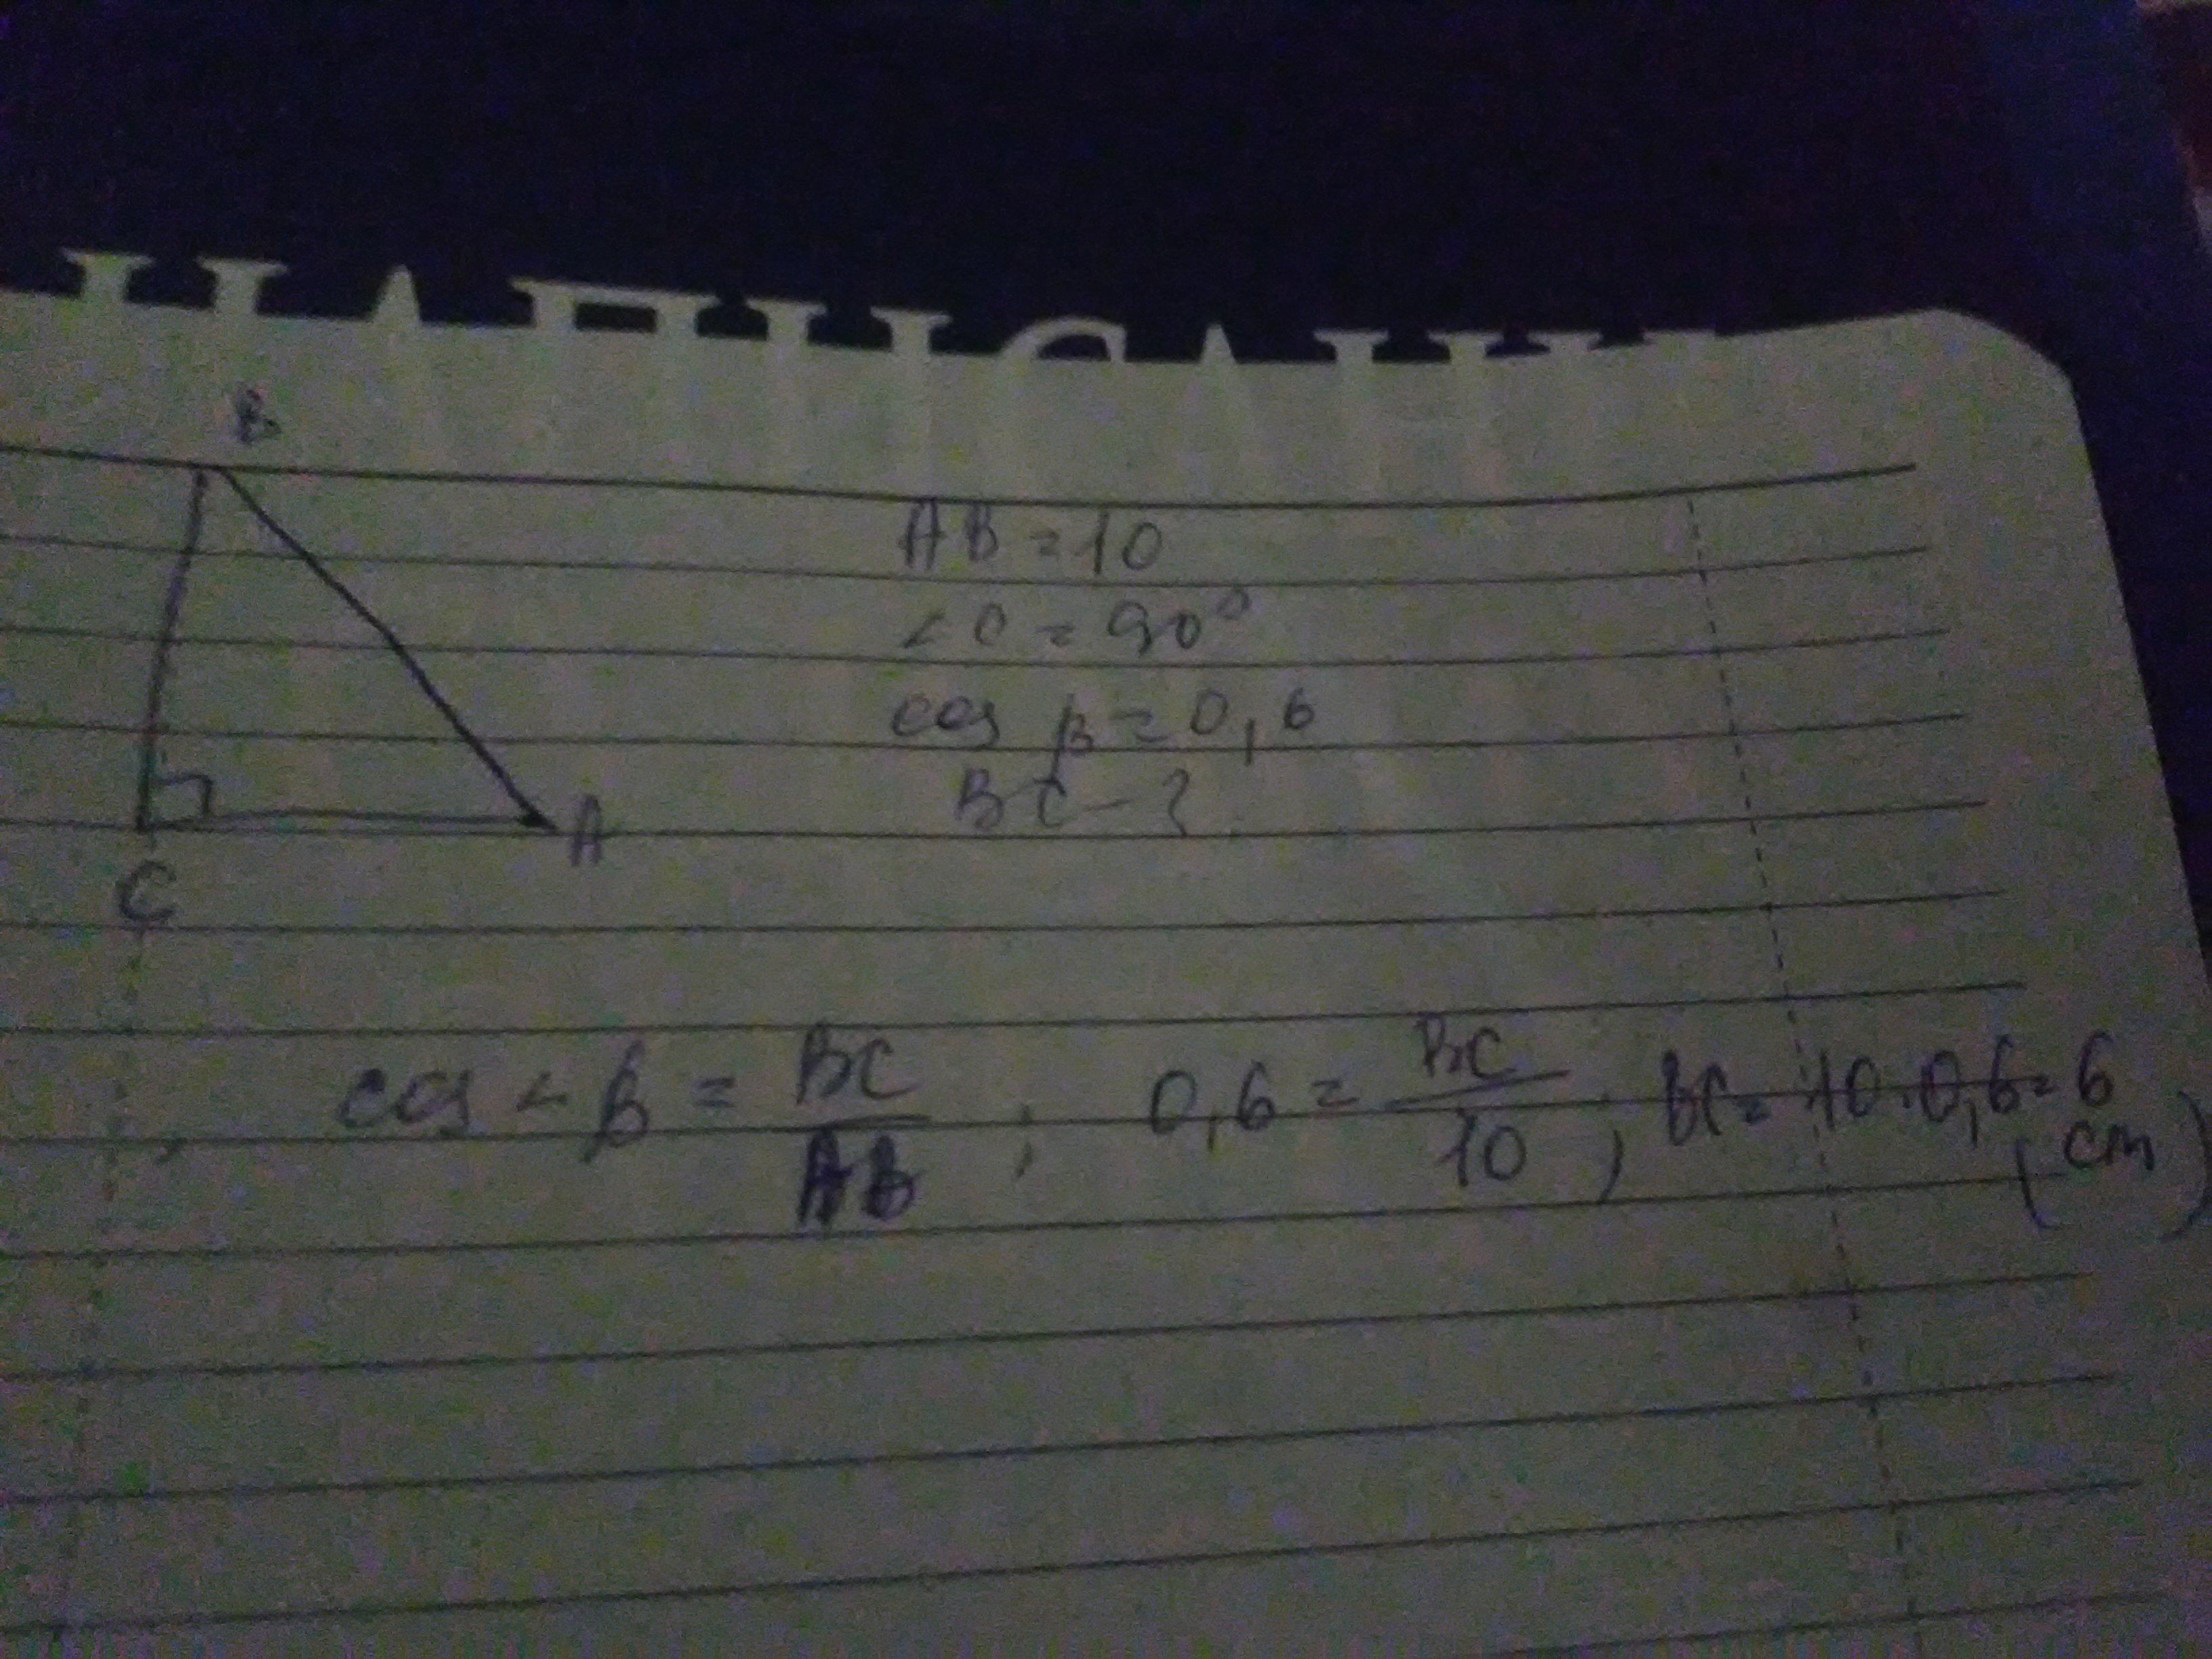 B
AB = 10
∠C = 90°
cos β = 0,6
BC - ?
A
C
cos ∠B = BC/AB ; 0,6 = BC/10 , BC = 10·0,6 = 6
(cm)